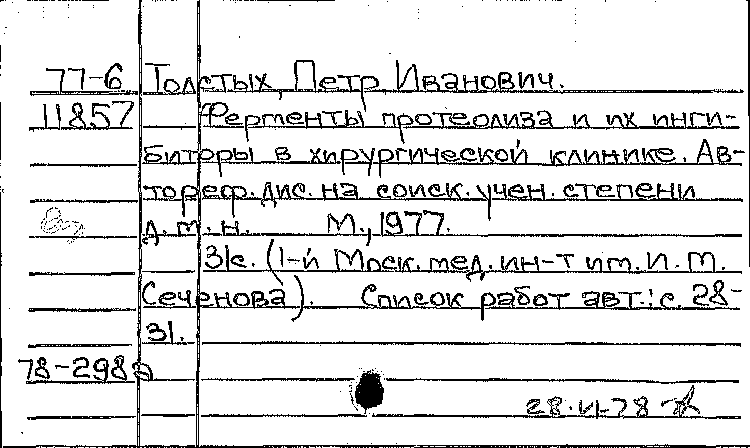 77-6 Толстых, Петр Иванович.
11857 Ферменты протеолиза и их инги-
биторы в хирургической клинике. Ав-
тореф. дис. на соиск. учен. степени
д.м.н. М., 1977.
31с. (1-й Моск. мед. ин-т им. И.М.
Сеченова). Список работ авт.: с. 28-
31.
78-298
28.VI-78